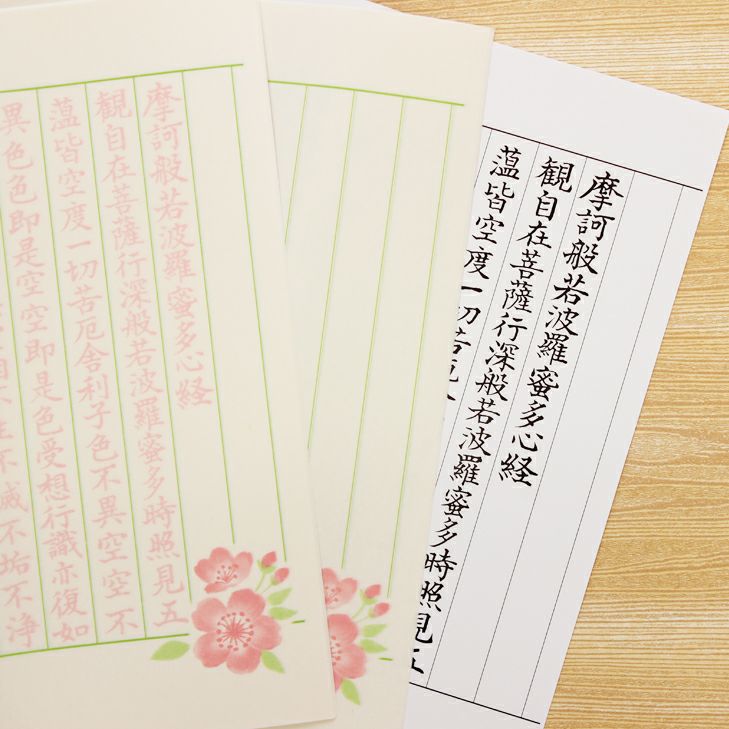 摩訶般若波羅蜜多心経
観自在菩薩行深般若波羅蜜多時照見五
蘊皆空度一切苦
摩訶般若波羅蜜多心経
観自在菩薩行深般若波羅蜜多時照見五
蘊皆空度一切苦厄舎利子色不異空空不
異色色即是空空即是色受想行識亦復如
不滅不垢不浄